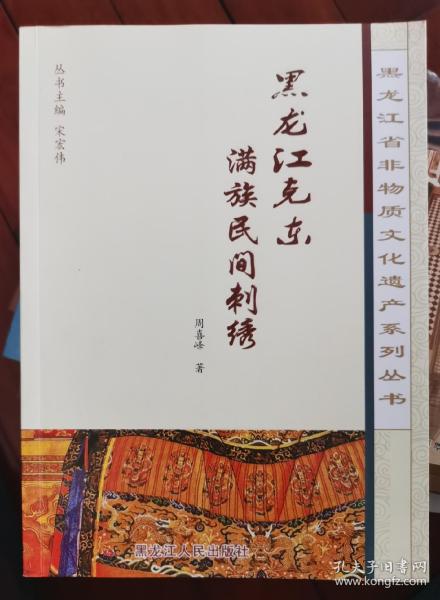 黑龙江省非物质文化遗产系列丛书
丛书主编 宋宏伟
黑龙江克东
满族民间刺绣
周喜峰 著
黑龙江人民出版社
孔夫子旧书网
www.kongfz.com